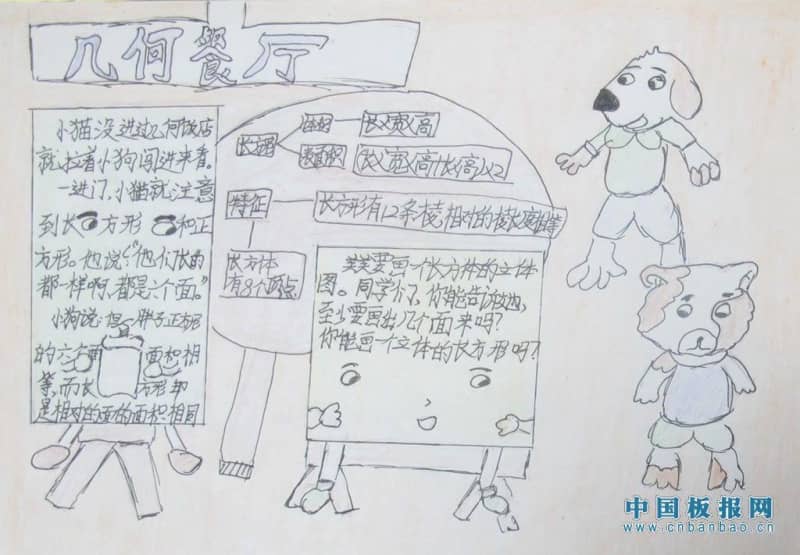 几何餐厅
小猫没进过几何饭店
就拉着小狗闯进来看。
一进门,小猫就注意
到长方形和正
方形。他说:“他们长的
都一样啊,都是六个面。”
小狗说:但一胖子正方形
的六个面面积相
等,而长方形却
是相对的面的面积相同
体积
长X宽X高
长方形
表面积
特征
长方形有12条棱,相对的棱长度相等
长方体
有8个顶点
笑笑要画一个长方体的立体
图。同学们,你能告诉她,
至少要画出几个面来吗?
你能画一个立体的长方形吗?
中国板报网
www.cnbanbao.cn